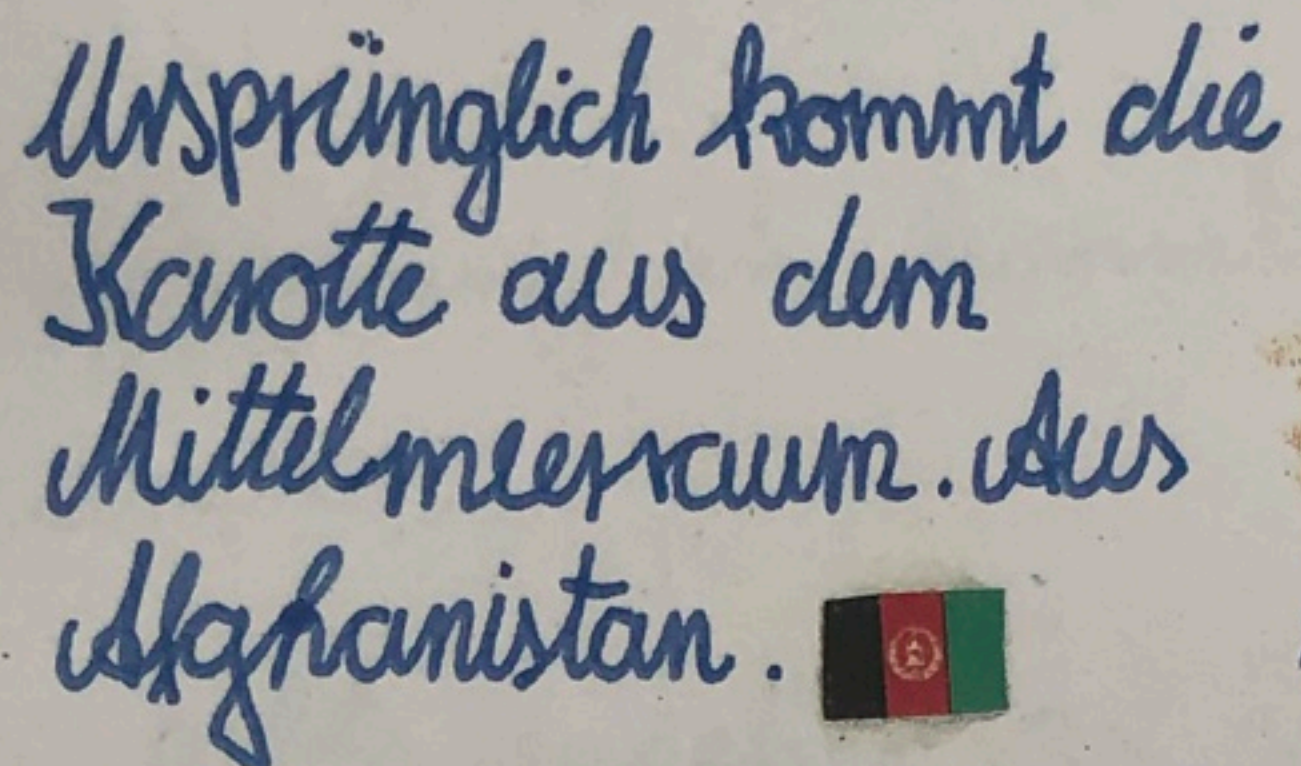 Ursprünglich kommt die
Karotte aus dem
Mittelmeerraum. Aus
Afghanistan.